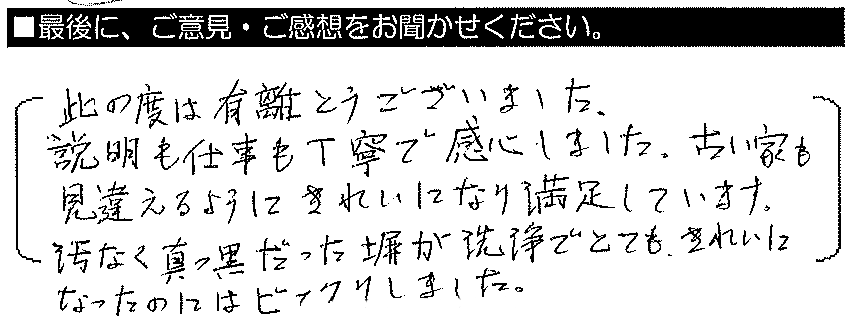 ■最後に、ご意見・ご感想をお聞かせください。
此の度は有離とうございました。
説明も仕事も丁寧で感心しました。古い家も
見違えるようにきれいになり満足しています。
汚なく真っ黒だった塀が洗浄でとても、きれいに
なったのにはビックリしました。